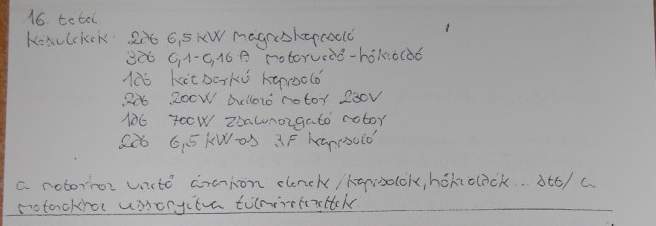 16. tétel
Készülékek: 2db 6,5 kW mágneskapcsoló
3db 0,1-0,16 A motorvédő-hőkioldó
1db kétsarkú kapcsoló
2db 200W szellőző motor 230V
1db 700W zsaluмozgató motor
2db 6,5 kW-os 3F kapcsoló
a motorhoz vivő áramköri elemek /kapcsolók, hőkioldók... stb/ a
motorokhoz viszonyítva túlméretezettek